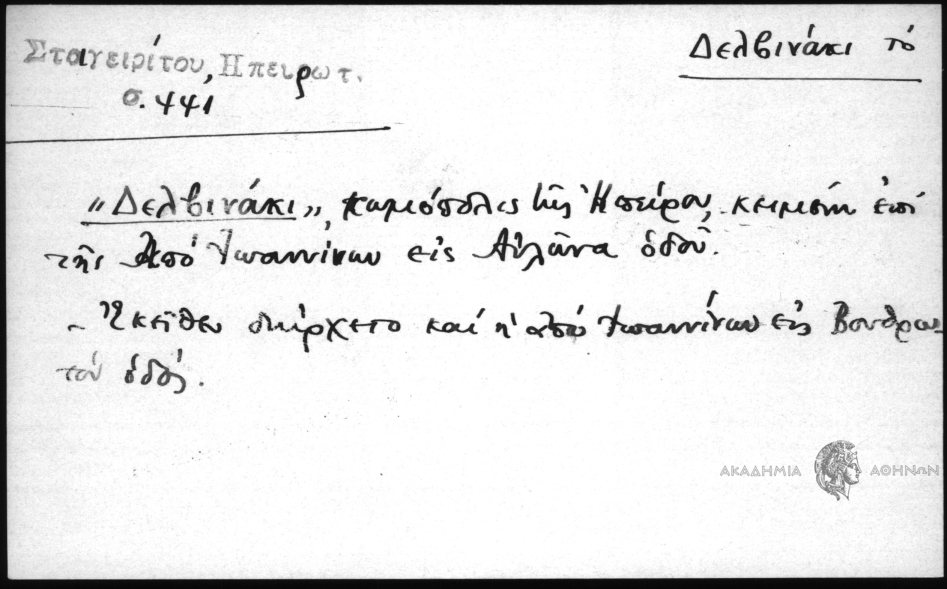 Σταγειρίτου, Ηπειρωτ.
σ. 441
Δελβινάκι τό
"Δελβινάκι", κωμόπολις τῆς Ἠπείρου, κειμένη ἐπί
τῆς ἀπό Ἰωαννίνων εἰς Αὐλῶνα ὁδοῦ.
- Ἐκεῖθεν διήρχετο καί ἡ ἀπό Ἰωαννίνων εἰς Βουθρω
τόν ὁδός.
ΑΚΑΔΗΜΙΑ ΑΘΗΝΩΝ